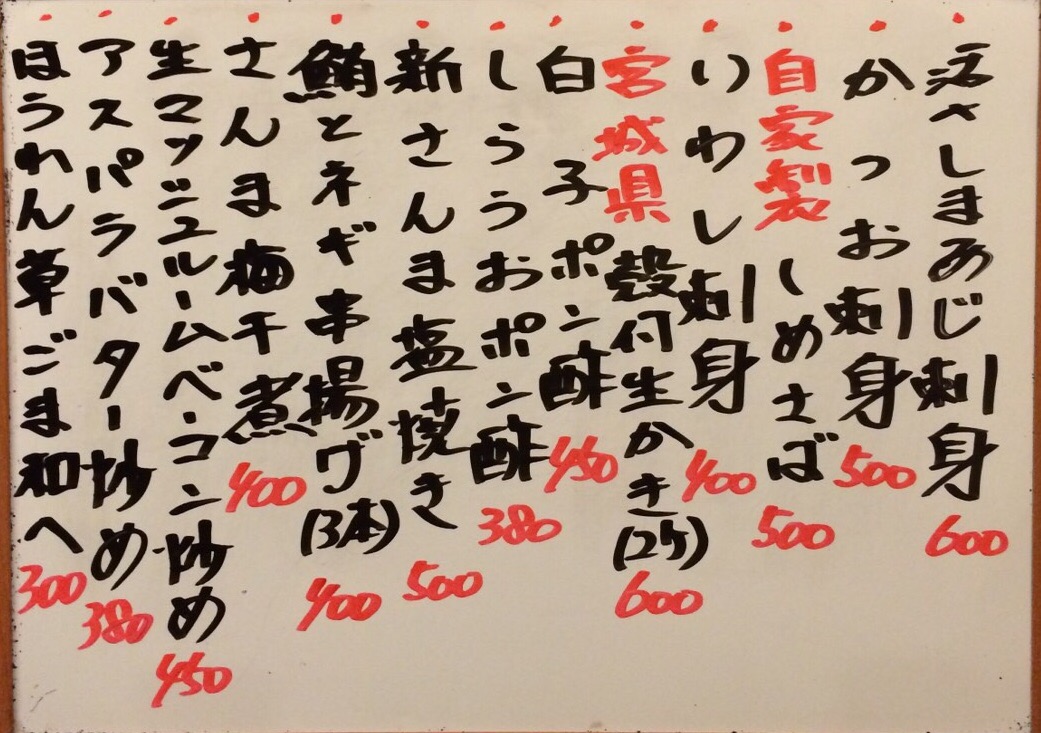 活さしまあじ刺身 600
かつお刺身 500
自家製しめさば 500
いわし刺身 400
宮城県殻付生かき(2ケ) 600
白子ポン酢 450
しらうおポン酢 380
新さんま塩焼き 500
鮪とネギ串揚げ(3本) 400
さんま梅干煮 400
生マッシュルームベーコン炒め 450
アスパラバター炒め 380
ほうれん草ごま和へ 300